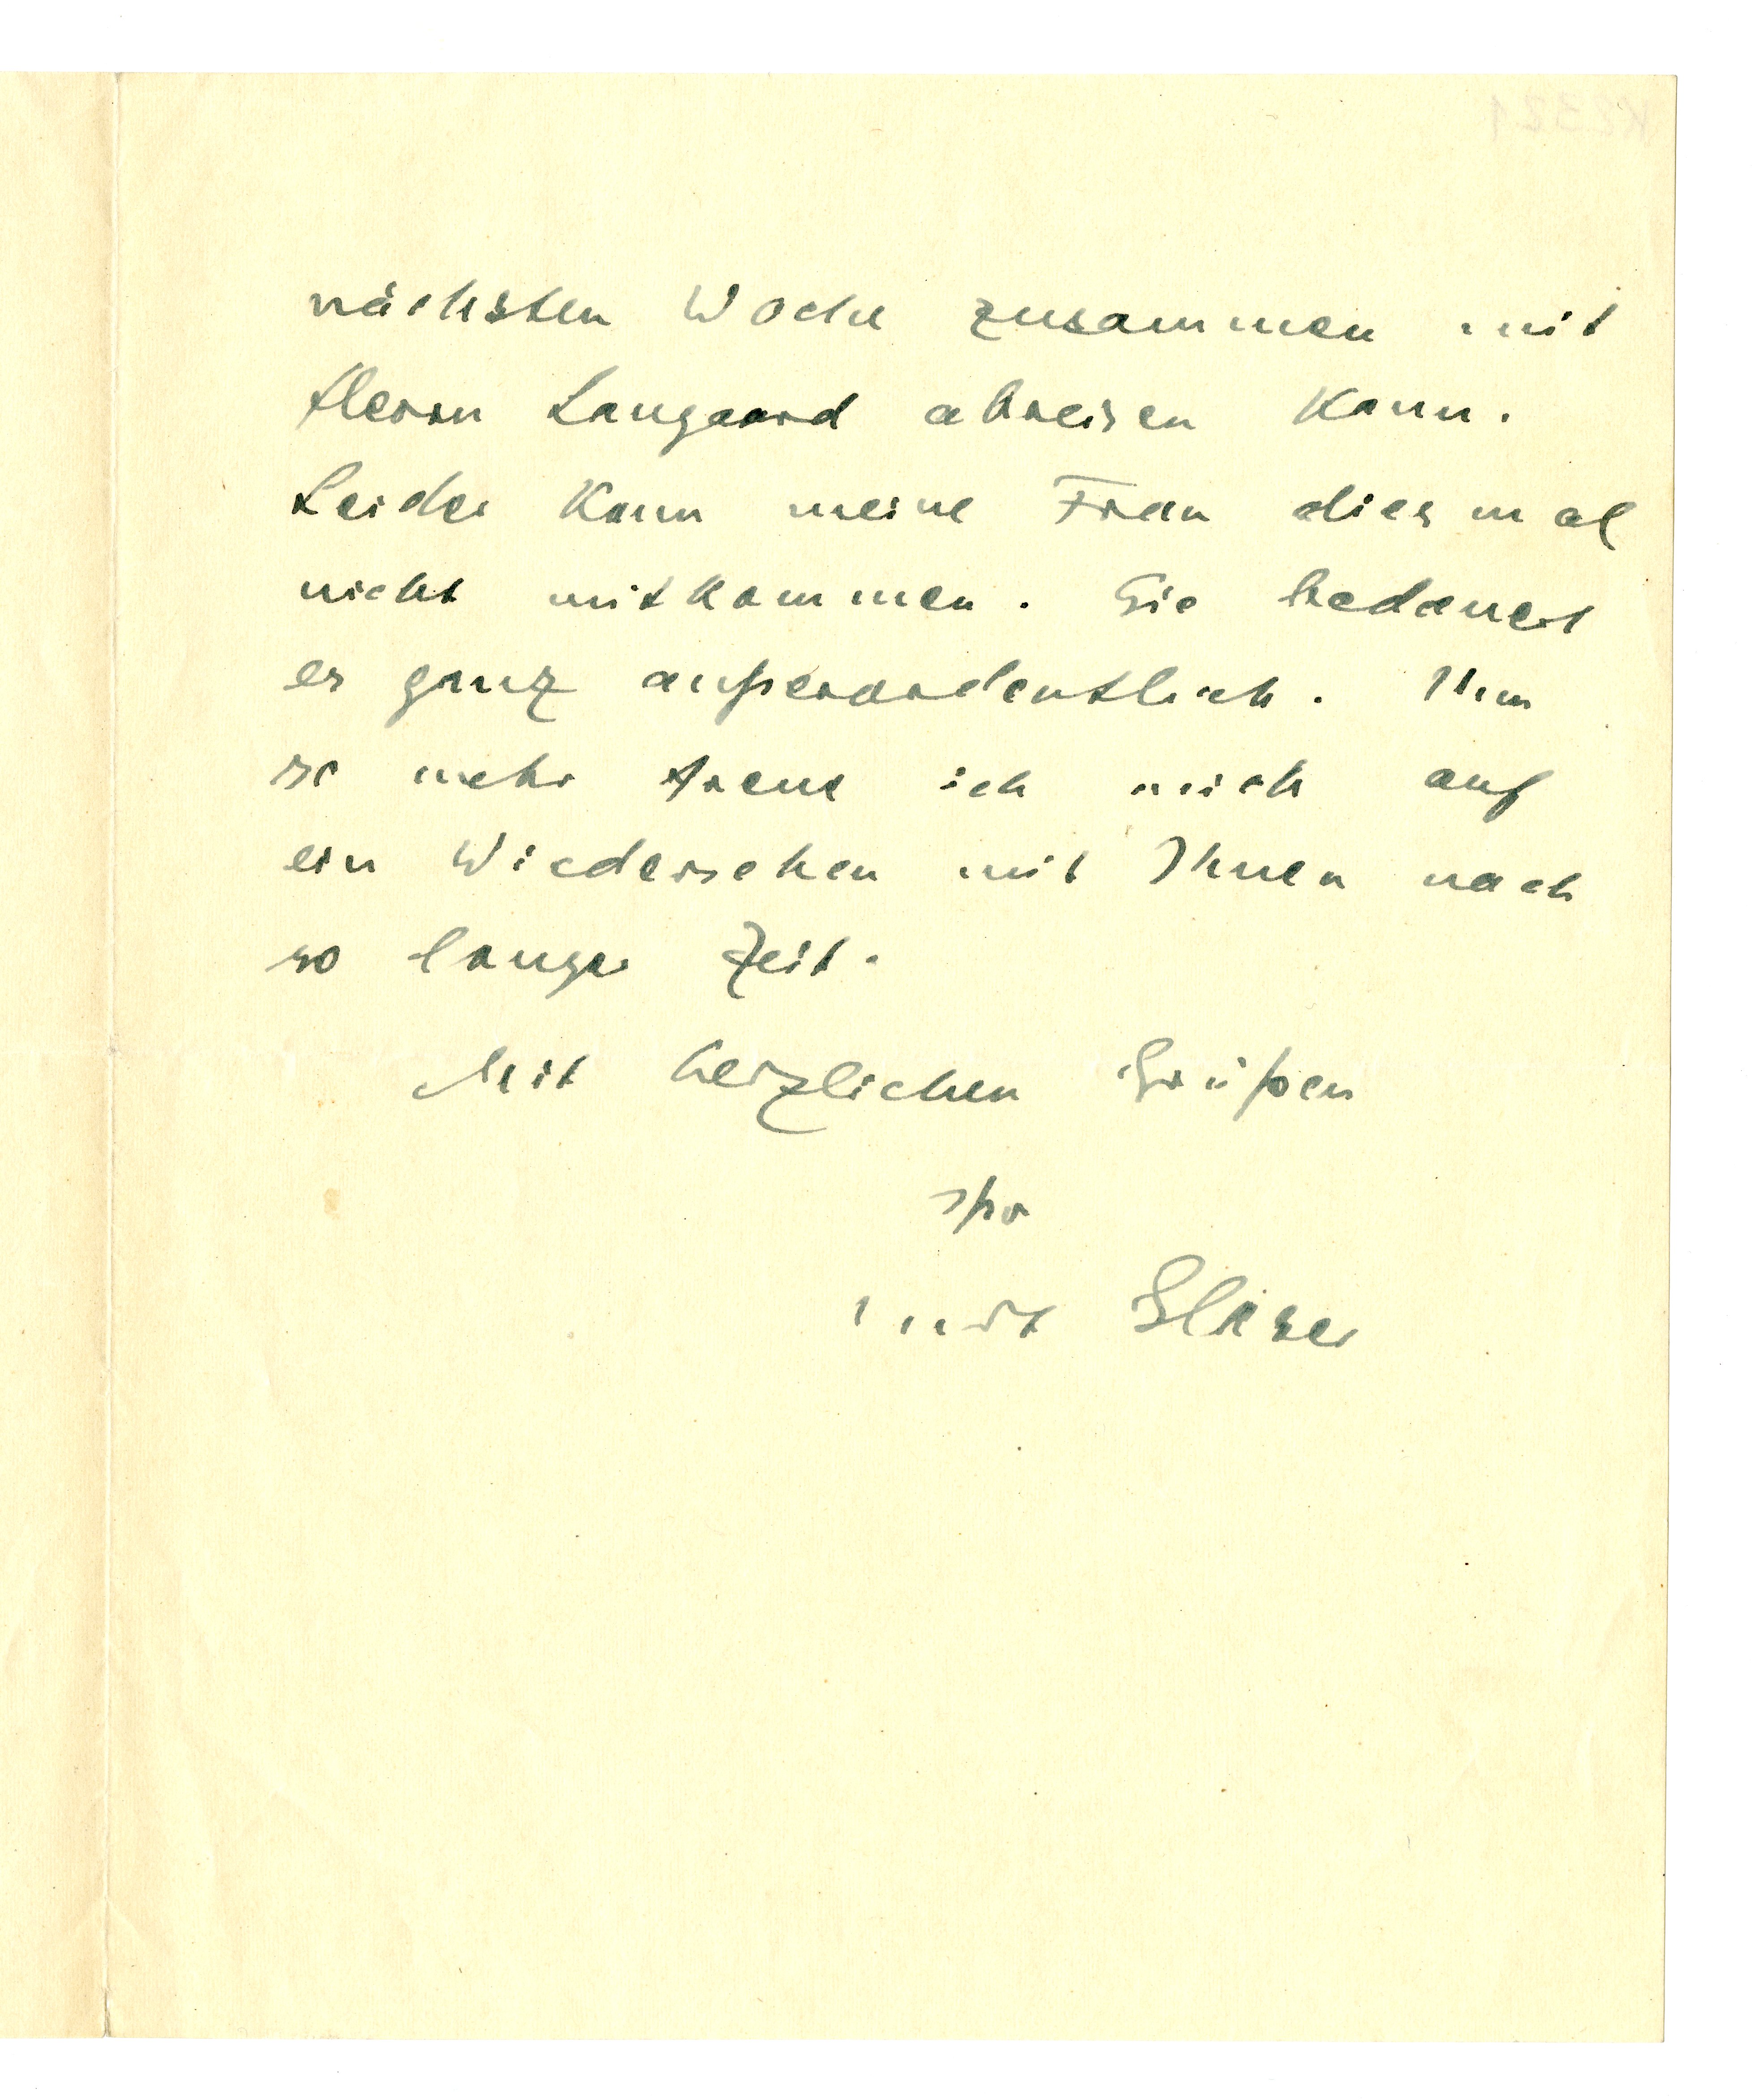 nächsten Woche zusammen mit
Herrn Langaard abreisen kann.
Leider kann meine Frau diesmal
nicht mitkommen. Sie bedauert
es ganz außerordentlich. Um
so mehr freue ich mich auf
ein Wiedersehen mit Ihnen nach
so langer Zeit.
Mit herzlichen Grüßen
Ihr
Curt Glaser